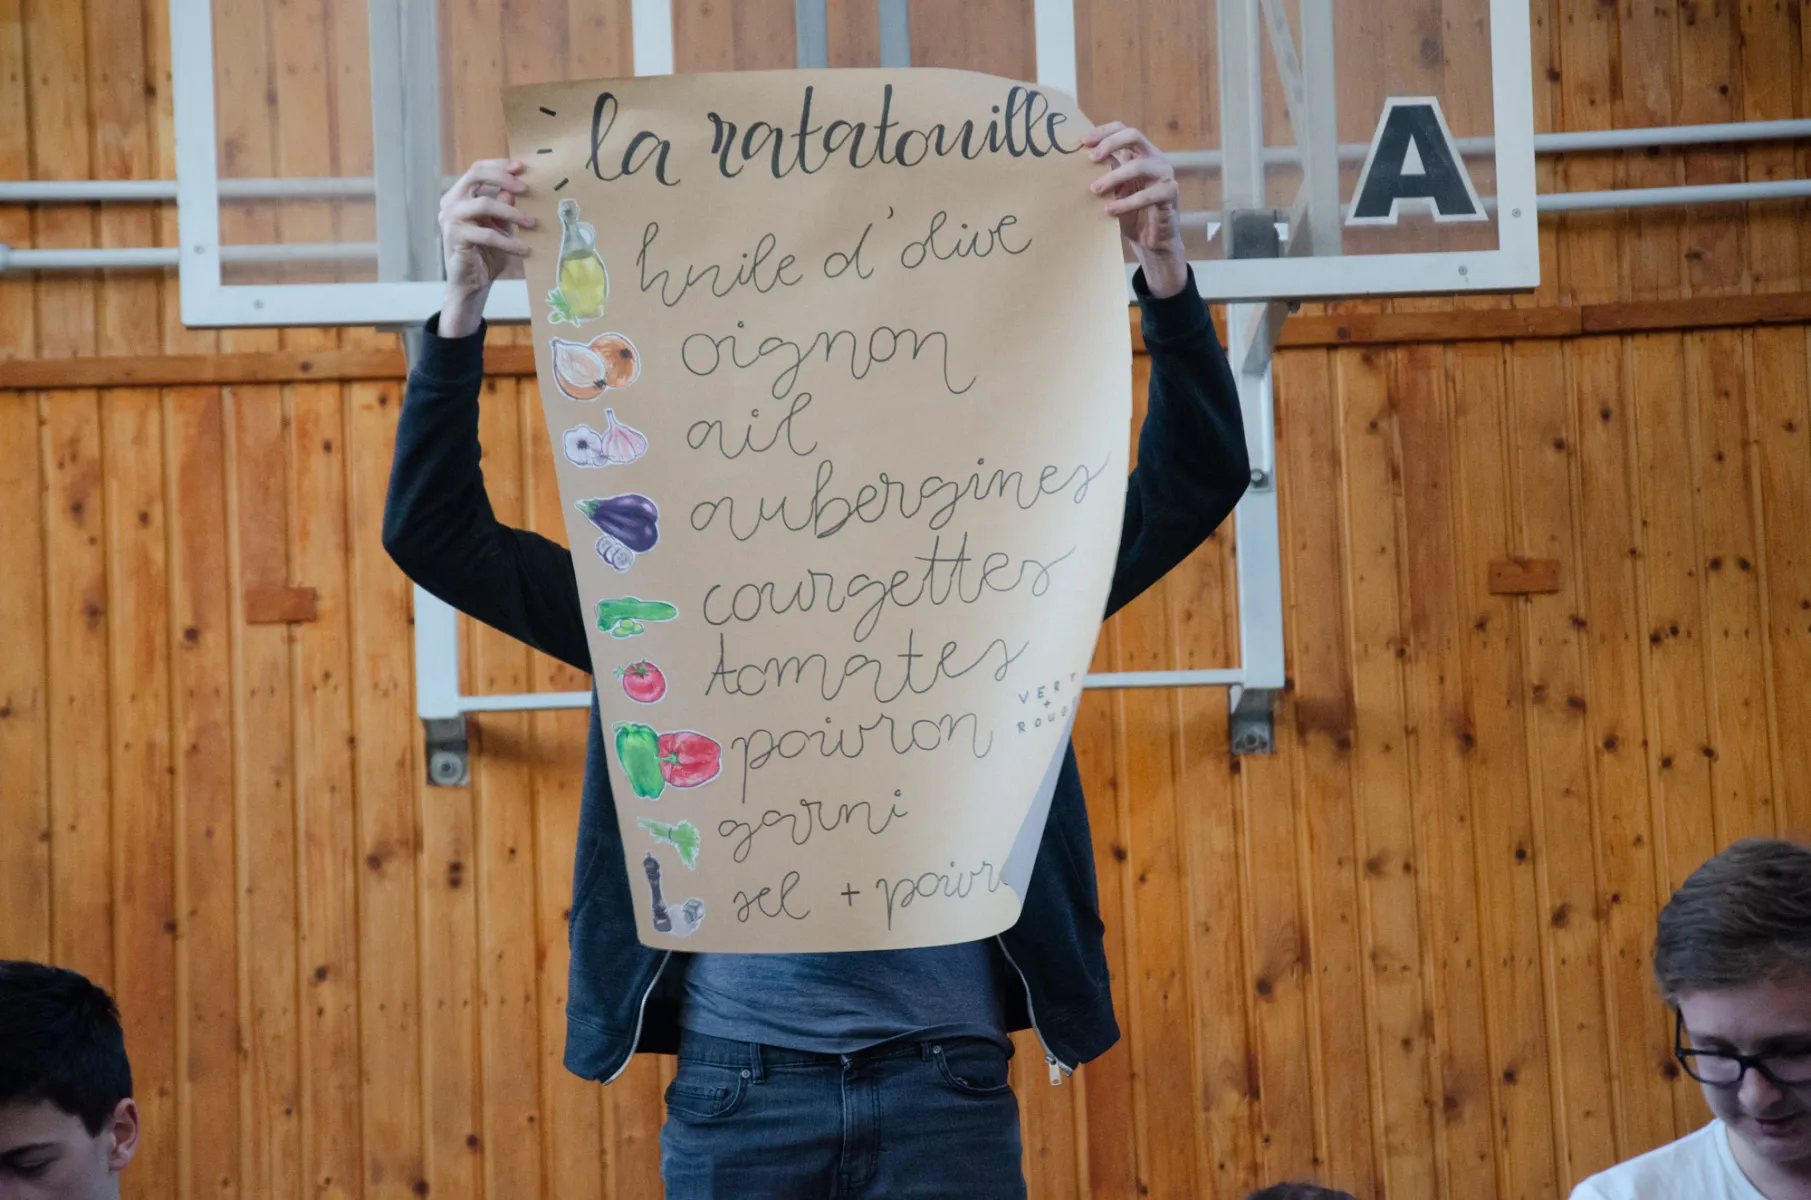 la ratatouille
A
huile d'olive
oignon
ail
aubergines
courgettes
tomates
poivron
VERT
+
garni
sel + poivr